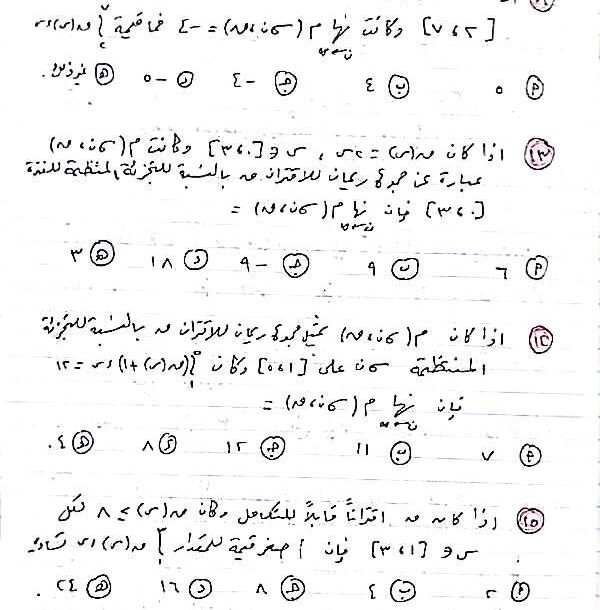 [٢،٧] وكانت نهـا م(σن،ق) = -٤ فما قيمة ∫ ق(س)دس
ن←∞
أ ٥ ب ٤ جـ -٤ د -٥ هـ غير ذلك.
١٣ اذا كان ق(س) = ٢س ، س ∈ [٠،٣] وكانت م(σن،ق)
عبارة عن مجموع ريمان للاقتران ق بالنسبة للتجزئة المنتظمة للفترة
[٠،٣] فإن نهـا م(σن،ق) =
ن←∞
أ ٦ ب ٩ جـ -٩ د ١٨ هـ ٣
١٤ اذا كان م(σن،ق) تمثل مجموع ريمان للاقتران ق بالنسبة للتجزئة
المنتظمة σن على [١،٥] وكان ∫(ق(س)+١)دس = ١٢
فإن نهـا م(σن،ق) =
ن←∞
أ ٧ ب ١١ جـ ١٢ د ٨ هـ ٤.
١٥ إذا كان ق اقتراناً قابلاً للتكامل وكان ق(س) ≥ ٨ لكل
س ∈ [١،٣] فإن أصغر قيمة للمقدار ∫ ق(س)دس تساوي
أ ٢ ب ٤ جـ ٨ د ١٦ هـ ٢٤.